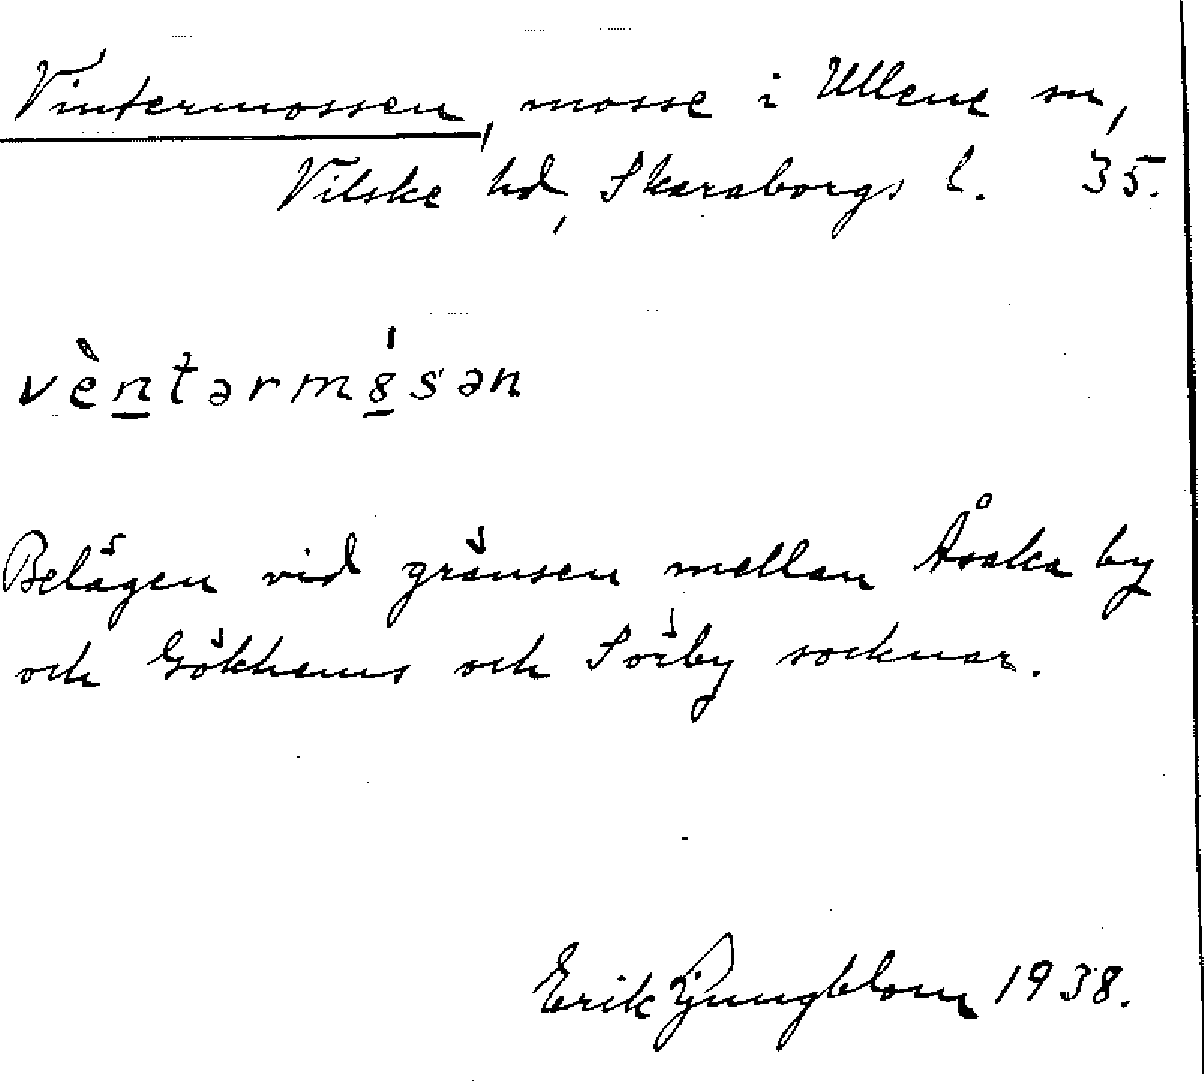 Vintermossen, mosse i Ullene sn,
Vilske hd, Skaraborgs l. 35.
vèntərm8́sən
Belägen vid gränsen mellan Åsaka by
och Gökhems och Sörby socknar.
Erik Ljungblom 1938.